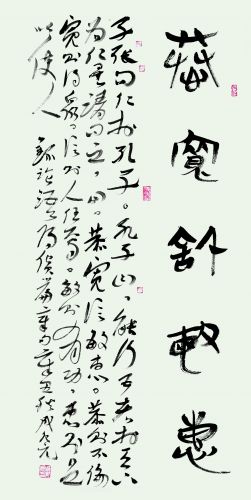 恭寬信敏惠
子張問仁於孔子。孔子曰。能行五者於天下
為仁矣。請問之。曰。恭寬信敏惠。恭則不侮
寬則得眾。信則人任焉。敏則有功。惠則足
以使人